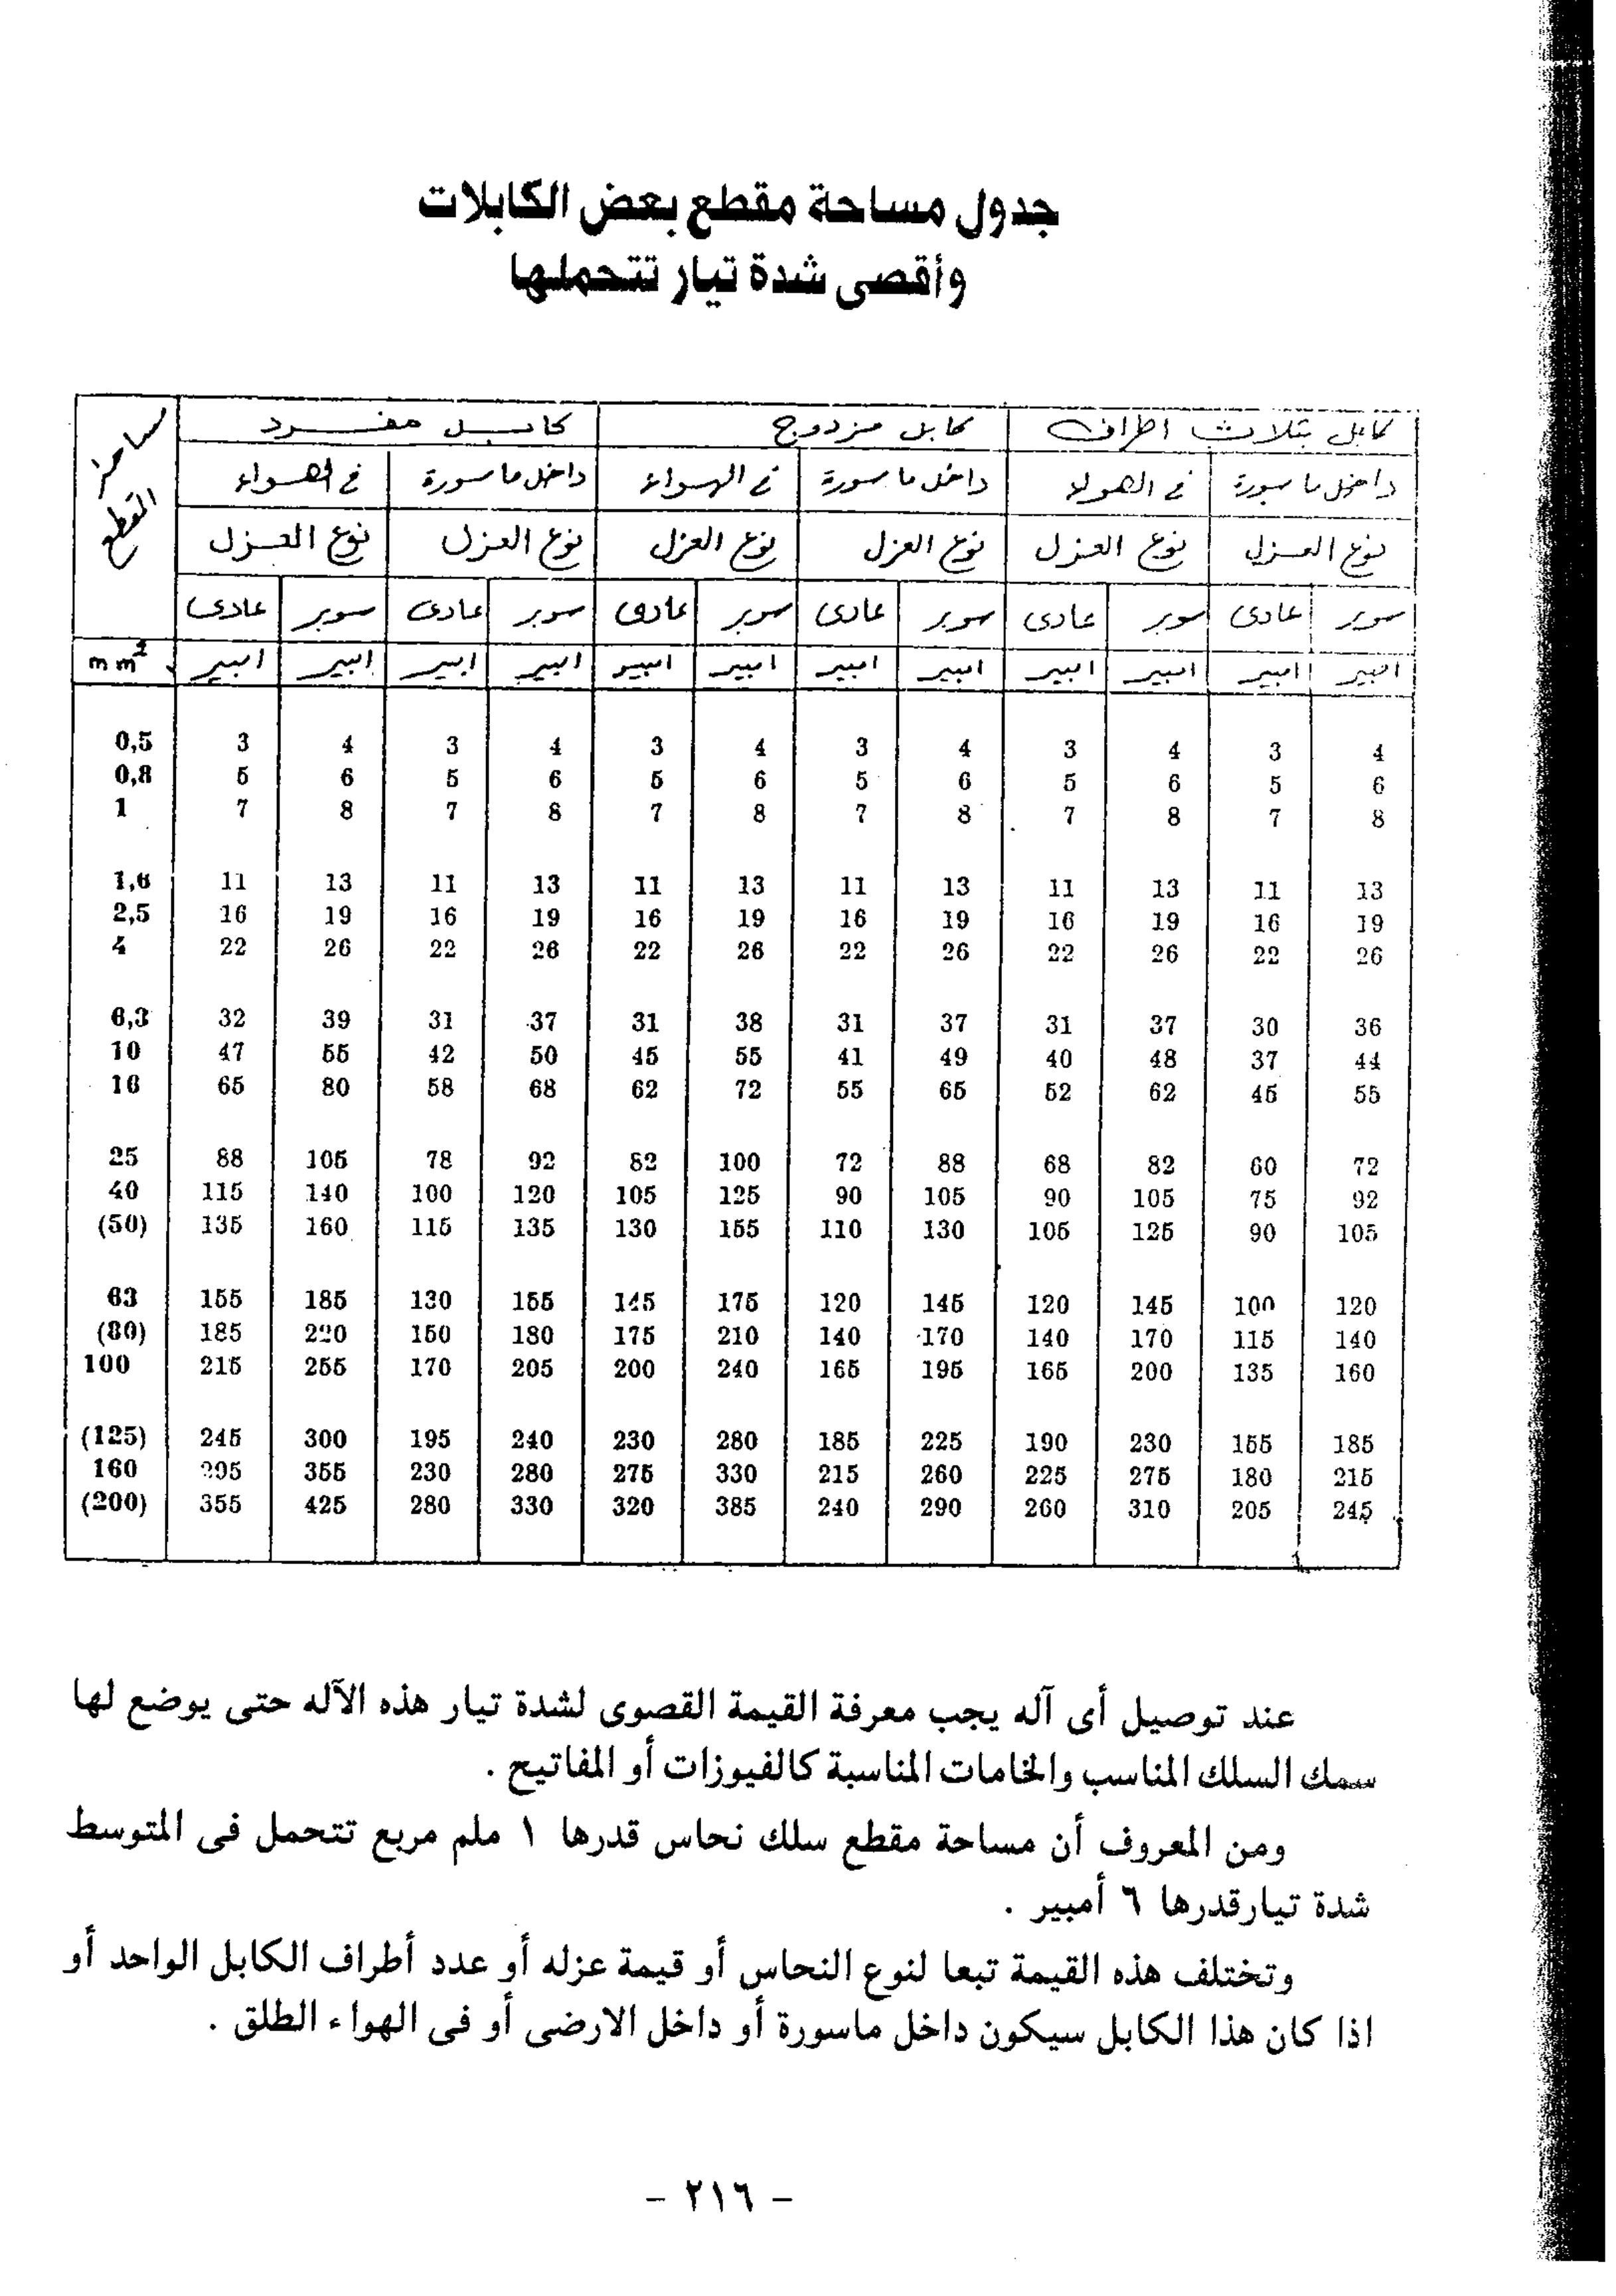 جدول مساحة مقطع بعض الكابلات
وأقصى شدة تيار تتحملها
مساحة المقطع كابل مفرد كابل مزدوج كابل بثلاث اطراف
فى الهواء داخل ماسورة فى الهواء داخل ماسورة فى الهواء داخل ماسورة
نوع العزل نوع العزل نوع العزل نوع العزل نوع العزل نوع العزل
عادى سوبر عادى سوبر عادى سوبر عادى سوبر عادى سوبر عادى سوبر
mm² امبير امبير امبير امبير امبير امبير امبير امبير امبير امبير امبير امبير
0,5 3 4 3 4 3 4 3 4 3 4 3 4
0,8 5 6 5 6 5 6 5 6 5 6 5 6
1 7 8 7 8 7 8 7 8 7 8 7 8
1,6 11 13 11 13 11 13 11 13 11 13 11 13
2,5 16 19 16 19 16 19 16 19 16 19 16 19
4 22 26 22 26 22 26 22 26 22 26 22 26
6,3 32 39 31 37 31 38 31 37 31 37 30 36
10 47 55 42 50 45 55 41 49 40 48 37 44
16 65 80 58 68 62 72 55 65 52 62 45 55
25 88 105 78 92 82 100 72 88 68 82 60 72
40 115 140 100 120 105 125 90 105 90 105 75 92
(50) 135 160 115 135 130 155 110 130 105 125 90 105
63 155 185 130 155 145 175 120 145 120 145 100 120
(80) 185 220 150 180 175 210 140 170 140 170 115 140
100 215 255 170 205 200 240 165 195 165 200 135 160
(125) 245 300 195 240 230 280 185 225 190 230 155 185
160 295 355 230 280 275 330 215 260 225 275 180 215
(200) 355 425 280 330 320 385 240 290 260 310 205 245
عند توصيل أى آله يجب معرفة القيمة القصوى لشدة تيار هذه الآله حتى يوضع لها
سمك السلك المناسب والخامات المناسبة كالفيوزات أو المفاتيح .
ومن المعروف أن مساحة مقطع سلك نحاس قدرها ١ ملم مربع تتحمل فى المتوسط
شدة تيارقدرها ٦ أمبير .
وتختلف هذه القيمة تبعا لنوع النحاس أو قيمة عزله أو عدد أطراف الكابل الواحد أو
اذا كان هذا الكابل سيكون داخل ماسورة أو داخل الارضى أو فى الهواء الطلق .
- ٢١٦ -